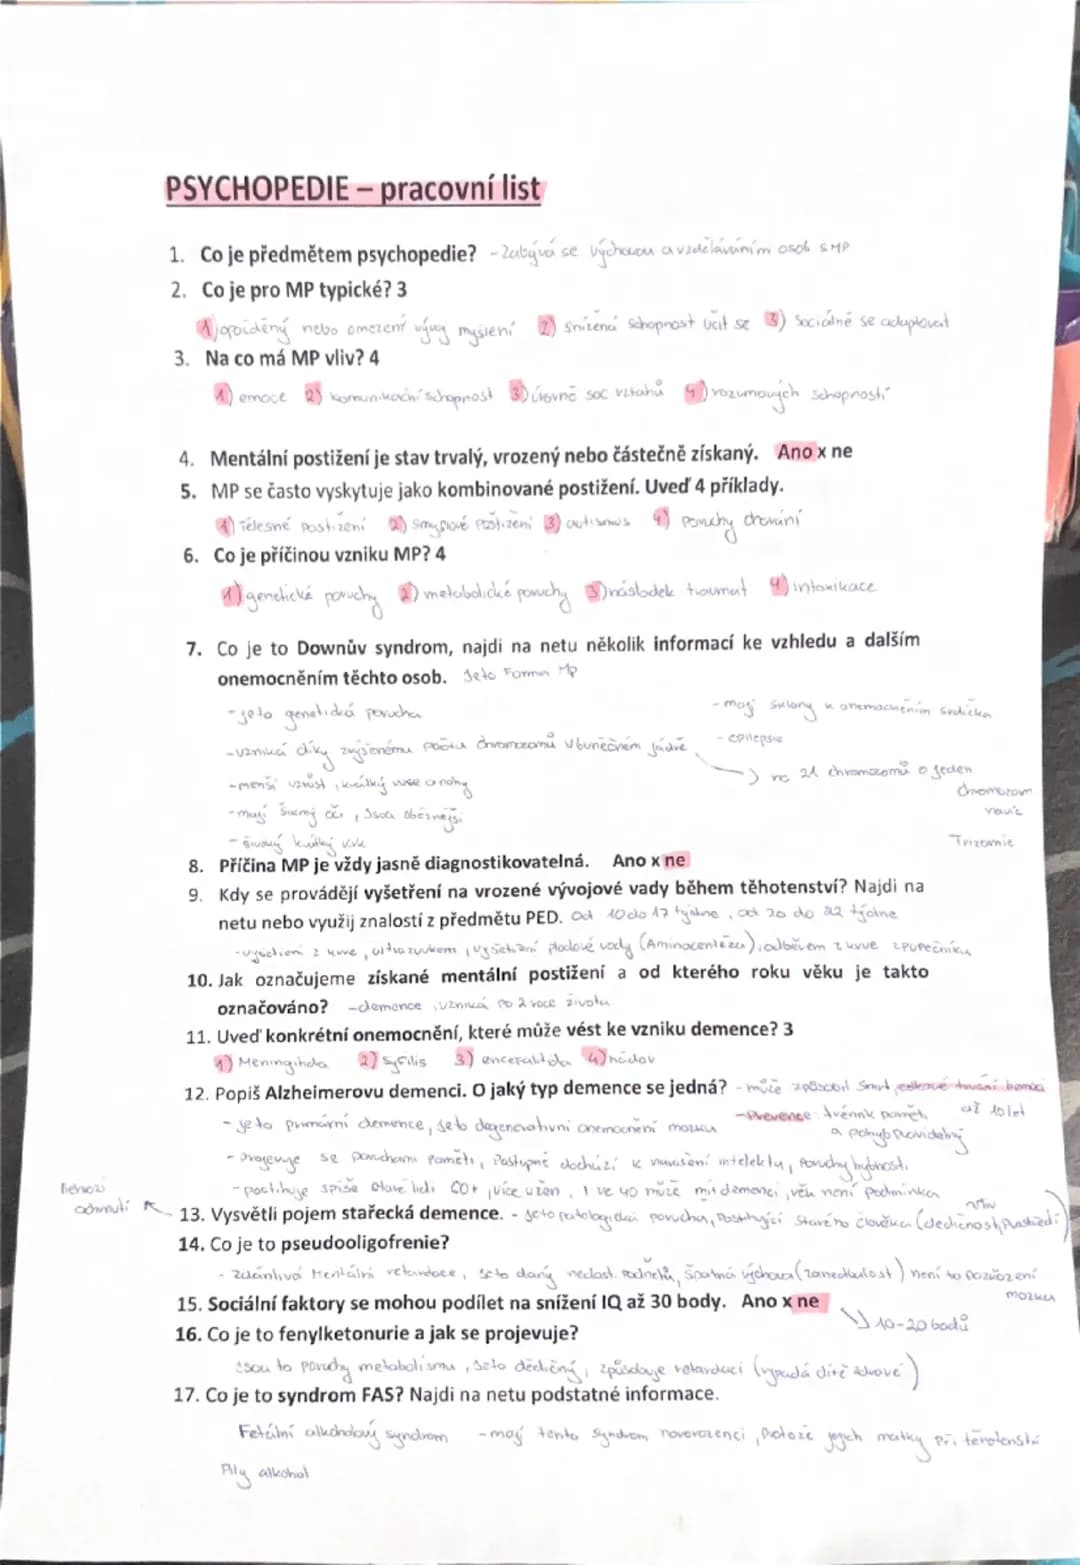 PSYCHOPEDIE – pracovní list
1. Co je předmětem psychopedie? - Zabývá se výchovou a vzděláváním osob s MP
2. Co je pro MP typické? 3
1) opožděný nebo omezení vývoj myšlení 2) snížená schopnost učit se 3) Sociálně se adaptovat
3. Na co má MP vliv? 4
1) emoce 2) komunikační schopnost 3) úrovně soc vztahů 4) rozumových schopností
4. Mentální postižení je stav trvalý, vrozený nebo částečně získaný. Ano x ne
5. MP se často vyskytuje jako kombinované postižení. Uveď 4 příklady.
1) Tělesné postižení 2) Smyslové postižení 3) autismus 4) Poruchy chování
6. Co je příčinou vzniku MP? 4
1) genetické poruchy 2) metabolické poruchy 3) následek traumat 4) intoxikace
7. Co je to Downův syndrom, najdi na netu několik informací ke vzhledu a dalším
onemocněním těchto osob. Je to Forma MP
- je to genetická porucha
- mají sklony k onemocněním srdíčka
- vzniká díky zvýšenému počtu chromozomů v buněčném jádře
- epilepsie
na 21 chromozomů o jeden
chromozom
navíc
- menší vzrůst, krátký ruce a nohy
- mají šikmý oči, jsou obéznější
- široký krátký krk
Trizomie
8. Příčina MP je vždy jasně diagnostikovatelná. Ano x ne
9. Kdy se provádějí vyšetření na vrozené vývojové vady během těhotenství? Najdi na
netu nebo využij znalostí z předmětu PED. Od 10 do 17 týdne, od 20 do 22 týdne
z krve, ultrazvukem, plodové vody (Aminocentéza), odběrem z krve z pupečníku
10. Jak označujeme získané mentální postižení a od kterého roku věku je takto
označováno? - demence, vzniká po 2 roce života
11. Uveď konkrétní onemocnění, které může vést ke vzniku demence? 3
1) Meningitida 2) Syfilis 3) encefalitida 4) nádor
12. Popiš Alzheimerovu demenci. O jaký typ demence se jedná? - může způsobit Smrt, celkové trvání nemoci
až 10 let
- Prevence: trénink paměti,
a pohyb pravidelný
- je to primární demence, je to degenerativní onemocnění mozku
- Projevuje se poruchami Paměti, Postupně dochází k narušení intelektu, Poruchy hybnosti,
- postihuje spíše staré lidi 60+, více u žen, 1 ve 40 může mít demenci, věk není podmínka
13. Vysvětli pojem stařecká demence. - Je to patologická porucha, Postihující Starého člověka (dědičnost, Prostředí)
14. Co je to pseudooligofrenie?
- Zdánlivá Mentální retardace, je to daný nedost. Podnětů, Špatná výchova (zanedbalost) není to poškození
mozku
15. Sociální faktory se mohou podílet na snížení IQ až 30 body. Ano x ne
10-20 bodů
16. Co je to fenylketonurie a jak se projevuje?
Jsou to Poruchy metabolismu, Je to dědičný, způsobuje retardaci (vypadá dítě zdravě)
17. Co je to syndrom FAS? Najdi na netu podstatné informace.
Fetální alkoholový syndrom - mají tento Syndrom novorozenci, Protože jejich matky Při těhotenství
Pily alkohol